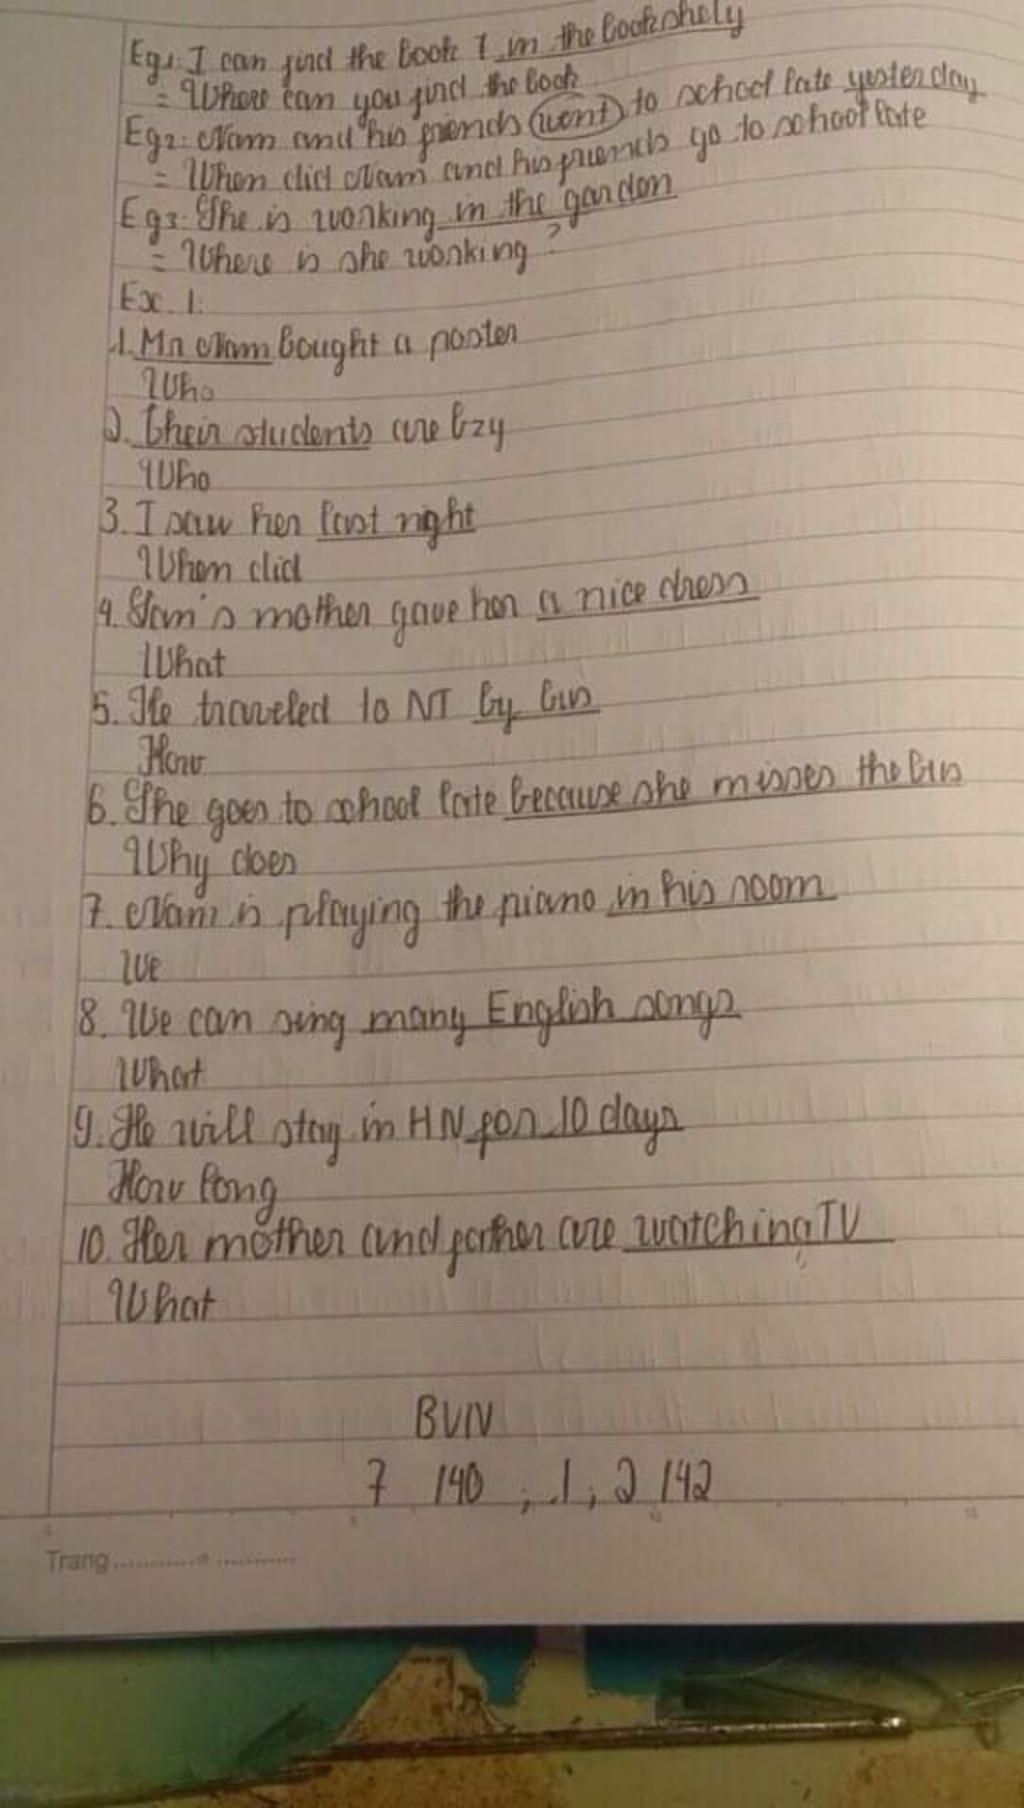 Eg1: I can find the book in the bookshely
= Where can you find the book
Eg2: Nam and his friends went to school late yesterday
= When did Nam and his friends go to school late
Eg3: She is working in the garden
= Where is she working?
Ex. 1.
1. Mr Nam bought a poster
Who
2. Their students are lazy
Who
3. I saw her last night
When did
4. Lan's mother gave her a nice dress
What
5. He traveled to NT by bus
How
6. She goes to school late because she misses the bus
Why does
7. Nam is playing the piano in his room
We
8. We can sing many English songs
What
9. He will stay in HN for 10 days
How long
10. Her mother and father are watching TV
What
BVN
7 140 ; 1, 2 142
Trang